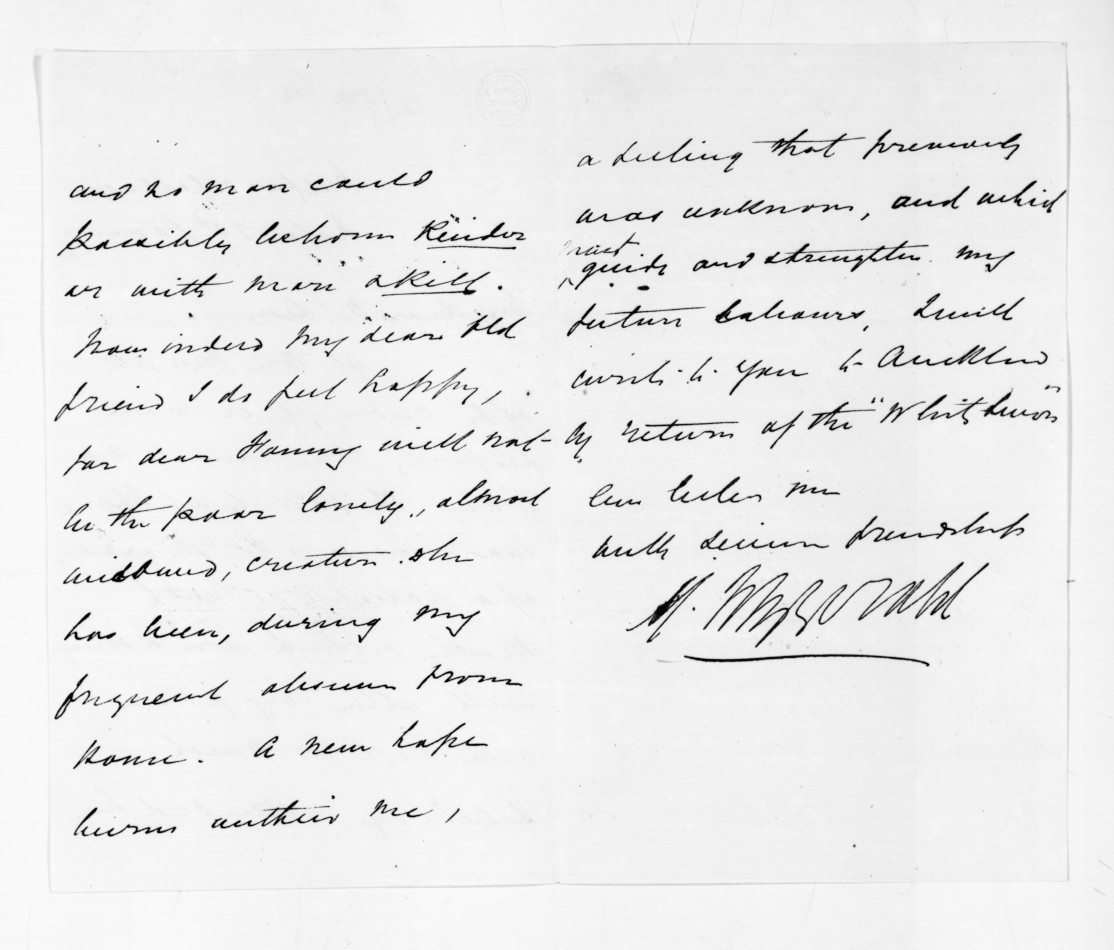 and no man could
possibly behave kinder
or with more skill.
Now indeed my dear old
friend I do feel happy,
for dear Fanny will not
be the poor lonely, almost
widowed, creature she
has been, during my
frequent absence from
home. A new hope
burns within me,
a feeling that previously
was unknown, and which
must
guide and strengthen my
future labours, I will
write to you to Auckland
by return of the "White Swan"
believe me
with sincere friendship
Fitzgerald